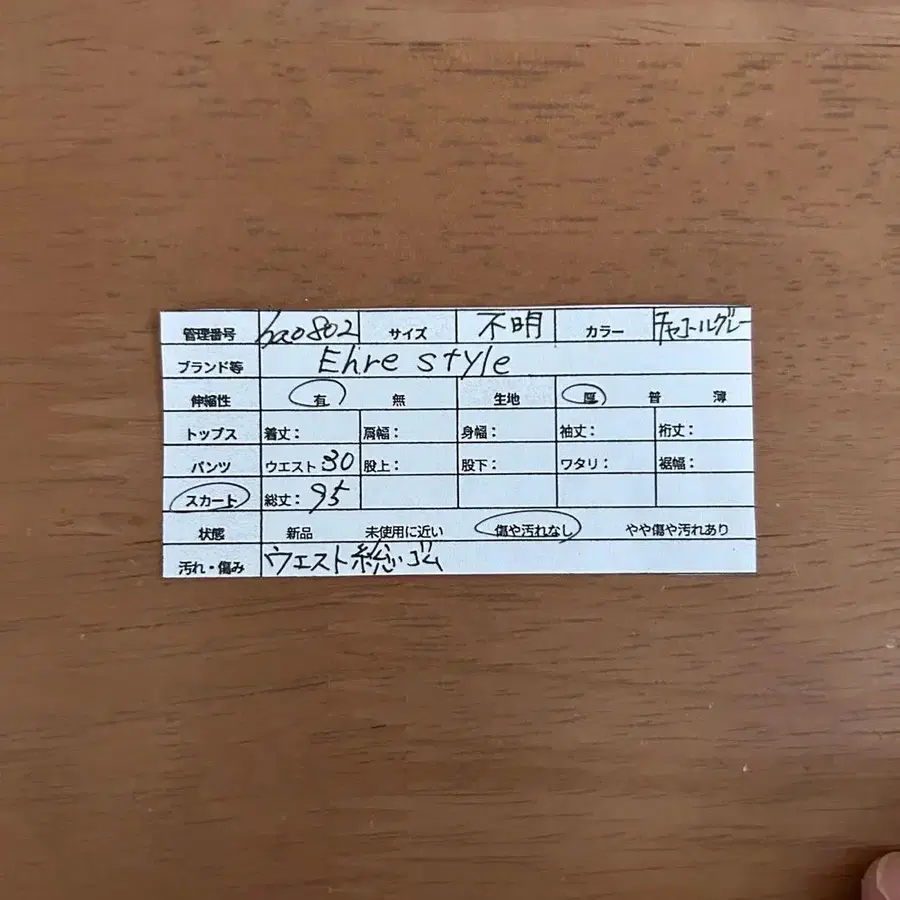 管理番号 bao802 サイズ 不明 カラー チャコールグレー
ブランド等 Ehre style
伸縮性 有 無 生地 厚 普 薄
トップス 着丈: 肩幅: 身幅: 袖丈: 裄丈:
パンツ ウエスト 30 股上: 股下: ワタリ: 裾幅:
スカート 総丈: 95
状態 新品 未使用に近い 傷や汚れなし やや傷や汚れあり
汚れ・傷み ウエスト総ゴム